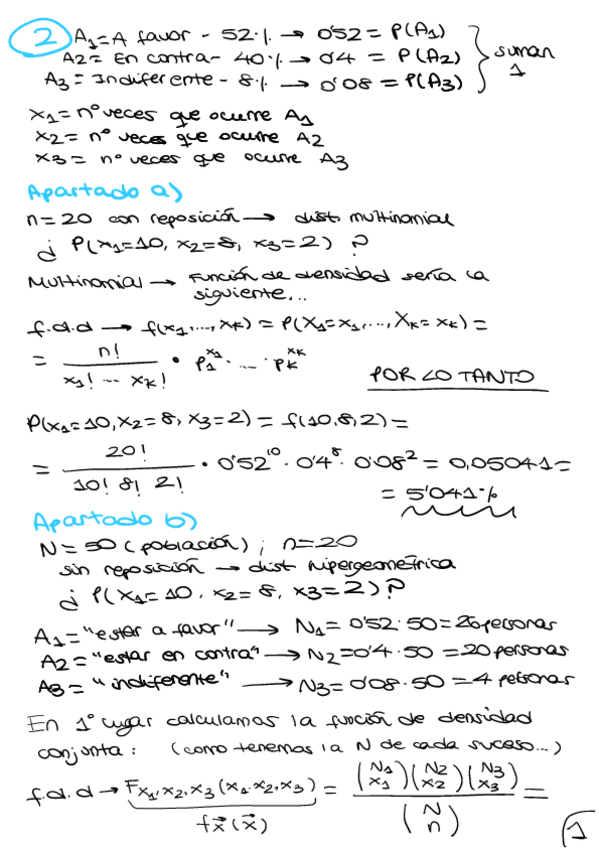 2 A1 = A favor - 52% → 0'52 = P(A1)
A2 = En contra - 40% → 0'4 = P(A2)
A3 = Indiferente - 8% → 0'08 = P(A3)
suman 1
x1 = nº veces que ocurre A1
x2 = nº veces que ocurre A2
x3 = nº veces que ocurre A3
Apartado a)
n=20 con reposición → dist. multinomial
¿ P(x1=10, x2=8, x3=2) ?
Multinomial → Función de densidad sería la
siguiente...
f.d.d → f(x1,...,xk) = P(X1=x1,..., Xk=xk) =
= n! / (x1! ... xk!) · p1^x1 · ... · pk^xk
POR LO TANTO
P(x1=10, x2=8, x3=2) = f(10,8,2) =
= 20! / (10! 8! 2!) · 0'52^10 · 0'4^8 · 0'08^2 = 0,05041 =
= 5'041%
Apartado b)
N = 50 (población) ; n=20
sin reposición → dist. hipergeométrica
¿ P(x1=10, x2=8, x3=2) ?
A1 = "estar a favor" → N1 = 0'52·50 = 26 personas
A2 = "estar en contra" → N2 = 0'4·50 = 20 personas
A3 = "indiferente" → N3 = 0'08·50 = 4 personas
En 1º lugar calculamos la función de densidad
conjunta: (como tenemos la N de cada suceso...)
f.d.d → Fx1,x2,x3 (x1,x2,x3) = (N1 x1)(N2 x2)(N3 x3) / (N n) =
fx⃗(x⃗)
1